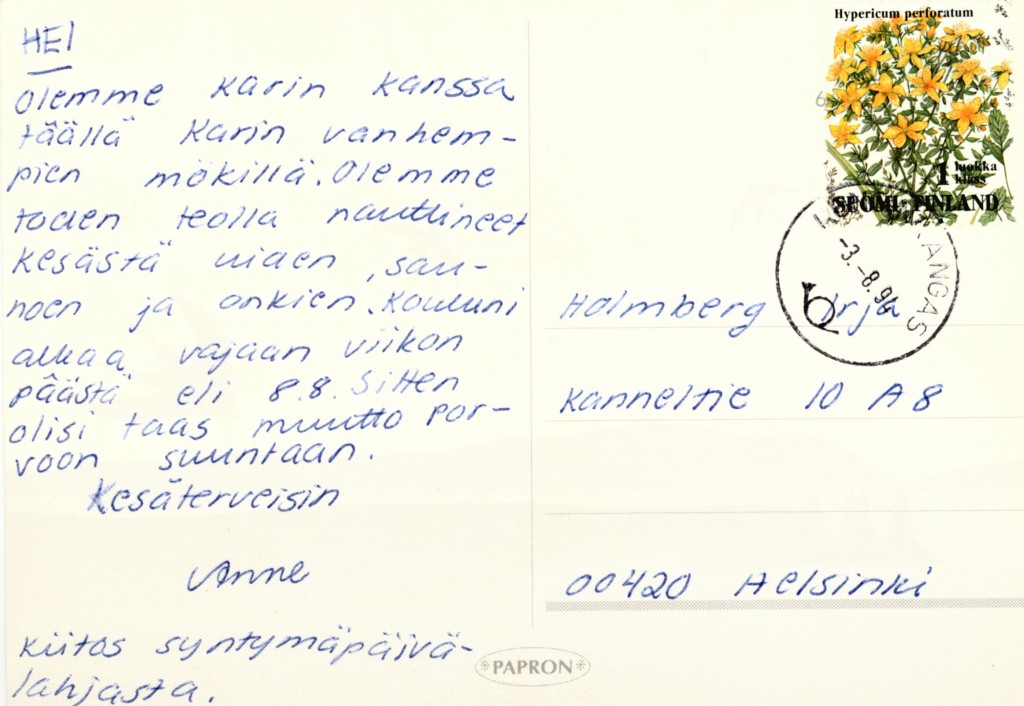 HEI
Olemme Karin kanssa
täällä Karin vanhem-
pien mökillä. Olemme
toden teolla nauttineet
kesästä uiden, sau-
noen ja onkien. Kouluni
alkaa vajaan viikon
päästä eli 8.8. Sitten
olisi taas muutto Por-
voon suuntaan.
Kesäterveisin
Anne
Kiitos syntymäpäivä-
lahjasta.
Hypericum perforatum
1 luokka
klass
SUOMI FINLAND
-3.-8.94
Holmberg Irja
Kanneltie 10 A 8
00420 Helsinki
PAPRON